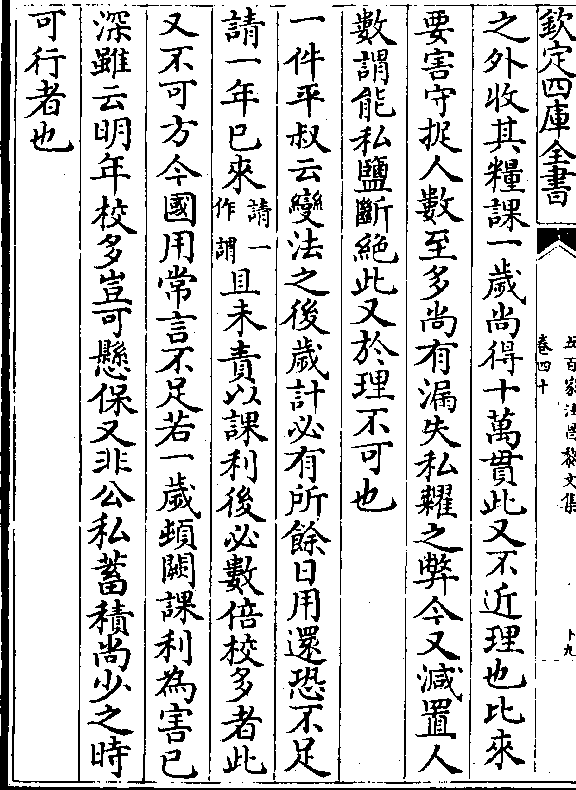 欽定四庫全書
五百家注昌黎文集
卷四十
十九
之外收其糧課一歲尚得十萬貫此又不近理也比來
要害守捉人數至多尚有漏失私糶之弊今又減置人
數謂能私鹽斷絶此又於理不可也
一件平叔云變法之後歲計必有所餘日用還恐不足
請一年已來請一作謂且未責以課利後必數倍校多者此
又不可方今國用常言不足若一歲頓闕課利為害已
深雖云明年校多豈可懸保又非公私蓄積尚少之時
可行者也